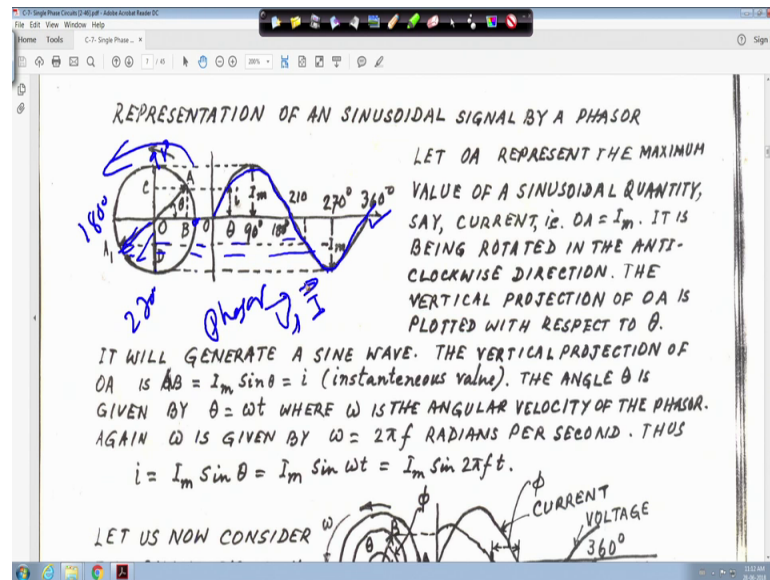 C-7- Single Phase Circuits [2-46].pdf - Adobe Acrobat Reader DC
File Edit View Window Help
Home Tools C-7- Single Phase ... × Sign
7 / 45 200%
REPRESENTATION OF AN SINUSOIDAL SIGNAL BY A PHASOR
LET OA REPRESENT THE MAXIMUM
VALUE OF A SINUSOIDAL QUANTITY,
SAY, CURRENT, i.e. OA = Im. IT IS
BEING ROTATED IN THE ANTI-
CLOCKWISE DIRECTION. THE
VERTICAL PROJECTION OF OA IS
PLOTTED WITH RESPECT TO θ.
C A θ O B D A1
i Im 210 270° 360°
0 θ 90° 180° -Im
180°
270
Phasor → V, I
IT WILL GENERATE A SINE WAVE. THE VERTICAL PROJECTION OF
OA IS AB = Im Sinθ = i (instanteneous value). THE ANGLE θ IS
GIVEN BY θ = ωt WHERE ω IS THE ANGULAR VELOCITY OF THE PHASOR.
AGAIN ω IS GIVEN BY ω = 2πf RADIANS PER SECOND. THUS
i = Im Sin θ = Im Sin ωt = Im Sin 2πft.
LET US NOW CONSIDER
ω ϕ B θ A
ϕ
CURRENT
VOLTAGE
360°
11:12 AM